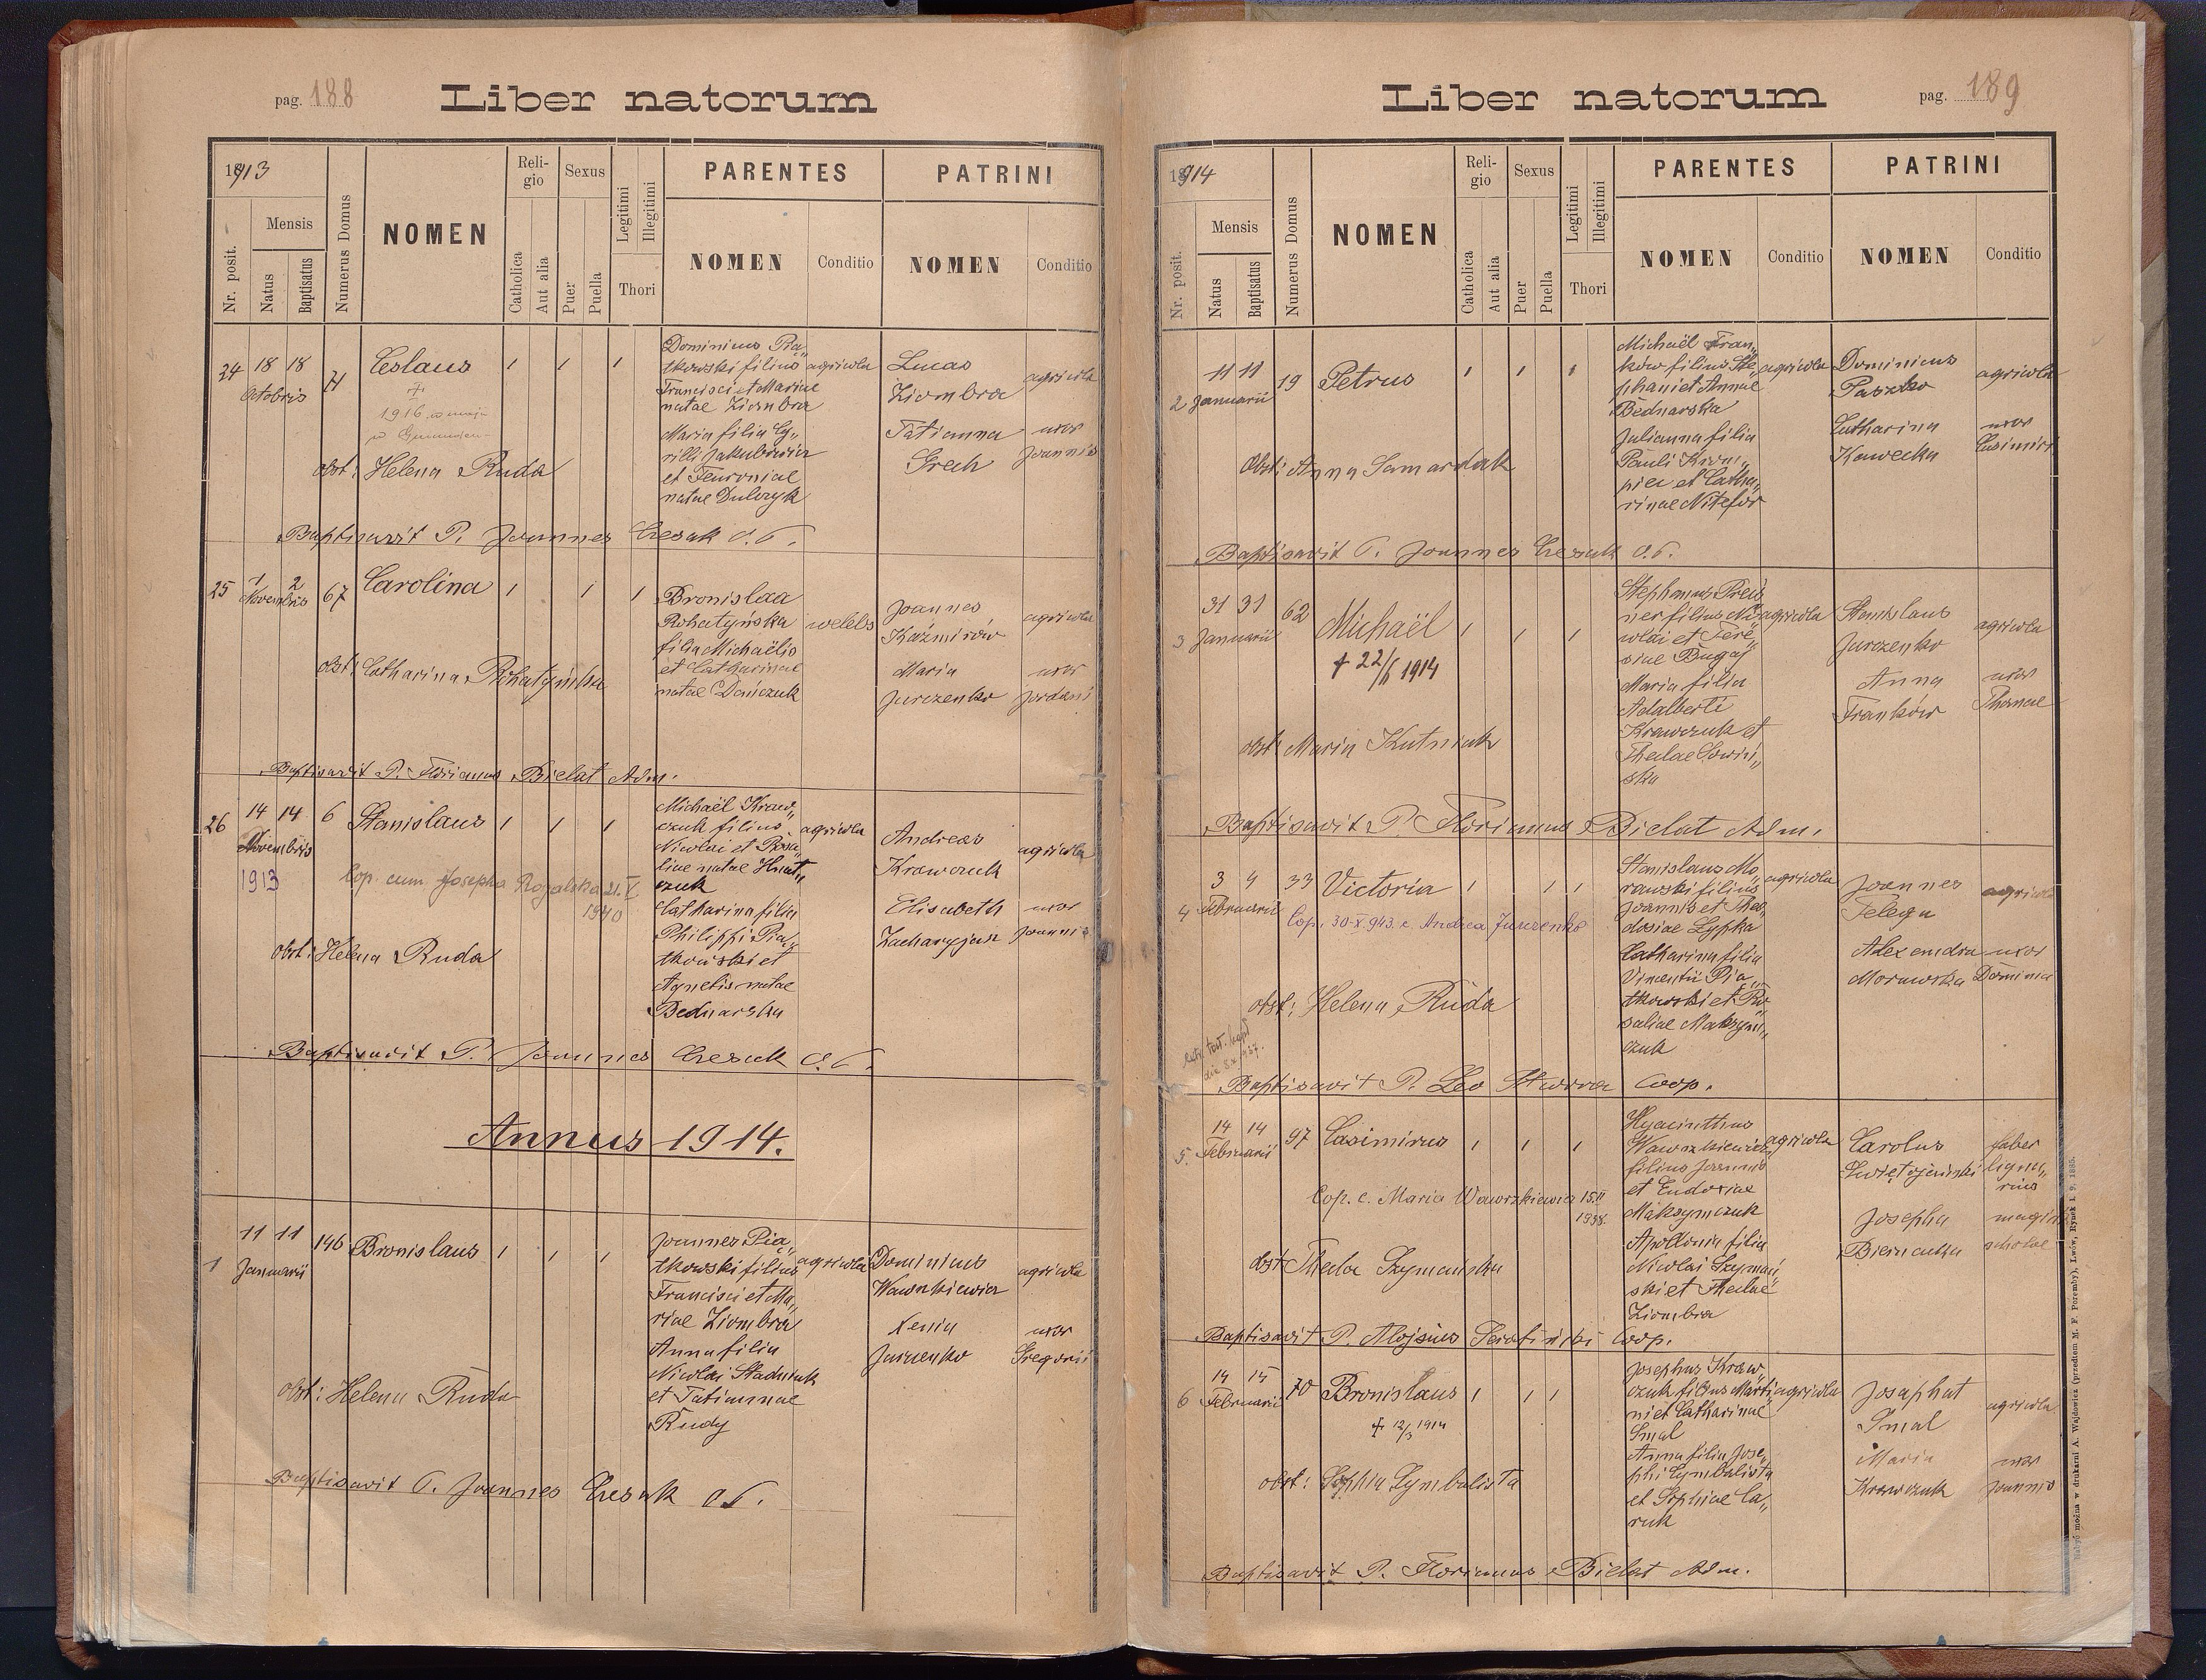 pag. 188
Liber natorum
1913
Nr. posit.
Mensis
Natus
Baptisatus
Numerus Domus
NOMEN
Religio
Catholica
Aut alia
Sexus
Puer
Puella
Legitimi
Illegitimi
Thori
PARENTES
NOMEN
Conditio
PATRINI
NOMEN
Conditio
24
18 18
Octobris
71
Ceslaus
1 1 1
†
1916
Dominicus Pią„
tkowski filius
Francisci et Mariae
natae Ziombra
Maria filia Cy„
rilli Jakubowicz
et Feuroniae
natae Dulczyk
agricola
Lucas
Ziombra
agricola
Tatianna
Grech
uxor
Joannis
obst: Helena Ruda
Baptisavit P. Joannes Czesak
25
1 2
Novembris
67
Carolina
1 1 1
Bronislaa
Rohatyńska
filia Michaëlis
et Catharinae
natae Dańczuk
Joannes
Kaźmirów
agricola
Maria
Jurczenko
uxor
Jordani
obst: Catharina Rohatyńska
Baptisavit P. Florianus Bielat Adm.
26
14 14
Novembris
1913
6
Stanislaus
1 1 1
Cop. cum Josepha Rogalska 21. V.
1940
Michaël Kraw„
czuk filius
Nicolai et Rosa„
liae natae Hnat„
czuk
Catharina filia
Philippi Pią„
tkowski et
Agnetis natae
Bednarska
agricola
Andreas
Krawczuk
agricola
Elisabeth
Zacharyjasz
uxor
Joannis
obst: Helena Ruda
Baptisavit P. Joannes Czesak
Annus 1914.
1
11 11
Januarii
146
Bronislaus
1 1 1
Joannes Pią„
tkowski filius
Francisci et Ma„
riae Ziombra
Anna filia
Nicolai Stadniuk
et Tatiannae
Rudy
agricola
Dominicus
Wawszkiewicz
agricola
Xenia
Jurczenko
uxor
Gregorii
obst: Helena Ruda
Baptisavit P. Joannes Czesak
pag. 189
Liber natorum
1914
Nr. posit.
Mensis
Natus
Baptisatus
Numerus Domus
NOMEN
Religio
Catholica
Aut alia
Sexus
Puer
Puella
Legitimi
Illegitimi
Thori
PARENTES
NOMEN
Conditio
PATRINI
NOMEN
Conditio
2
11 11
Januarii
19
Petrus
1 1 1
Michaël Fran„
ków filius Ste„
phani et Annae
Bednarska
Julianna filia
Pauli
et Catha„
rinae Nitefor
agricola
Dominicus
Paszko
agricola
Catharina
Kawecka
uxor
Casimiri
Obst: Anna Samardak
Baptisavit P. Joannes Czesak
3
31 31
Januarii
62
Michaël
† 22/6 1914
1 1 1
Stephanus Preis
ner filius Ni„
colai et Tere„
siae Bugaj
Maria filia
Adalberti
Krawczuk et
Theclae
ska
agricola
Stanislaus
Jurczenko
agricola
Anna
Franków
uxor
Thomae
obst: Maria Kutniak
Baptisavit P. Florianus Bielat Adm.
4
3 4
Februarii
33
Victoria
1 1 1
Cop. 30-X-943. c Andrea Jurczenko
Stanislaus Mo„
rawski filius
Joannis et Theo„
dosiae Lypka
Catharina filia
Vincentii Pią„
tkowski et Ro„
saliae Maksym„
czuk
agricola
Joannes
Telega
agricola
Alexandra
Morawska
uxor
Dominici
obst: Helena Ruda
Baptisavit P. Leo Coop.
5.
14 14
Februarii
97
Casimirus
1 1 1
Cop. c. Maria Wawrzkiewicz 15.II
1938.
Hyacinthus
Wawszkiewicz
filius Joannis
et Eudoxiae
Maksymczuk
Apollonia filia
Nicolai Szymań„
ski et Theclae
Ziombra
agricola
Carolus
Świętojański
faber
ligna„
rius
Josepha
Biernacka
magistra
scholae
obst: Thecla Szymańska
Baptisavit P. Alojsius Serafiński Coop.
6
14 15
Februarii
70
Bronislaus
1 1 1
† 12/3 1914
Josephus Kraw„
czuk filius Marti„
ni et Catharinae
Smal
Anna filia Jose„
phi Cymbalista
et Sophiae Ca„
ruk
agricola
Josaphat
Smal
agricola
Maria
Krawczuk
uxor
Joannis
obst: Sophia Cymbalista
Baptisavit P. Florianus Bielat Adm.
Nabyć można w drukarni A. Wajdowicz (przedtem M. F. Poremby), Lwów, Rynek l. 9. 1885.